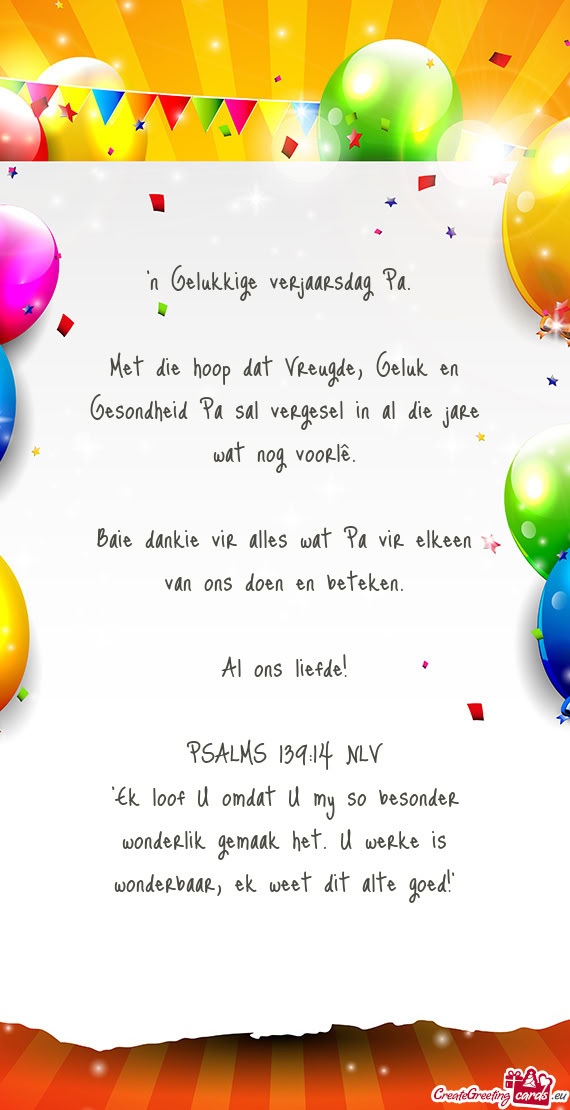 'n Gelukkige verjaarsdag Pa.
Met die hoop dat Vreugde, Geluk en
Gesondheid Pa sal vergesel in al die jare
wat nog voorlê.
Baie dankie vir alles wat Pa vir elkeen
van ons doen en beteken.
Al ons liefde!
PSALMS 139:14 NLV
"Ek loof U omdat U my so besonder
wonderlik gemaak het. U werke is
wonderbaar, ek weet dit alte goed!"
CreateGreetingcards.eu